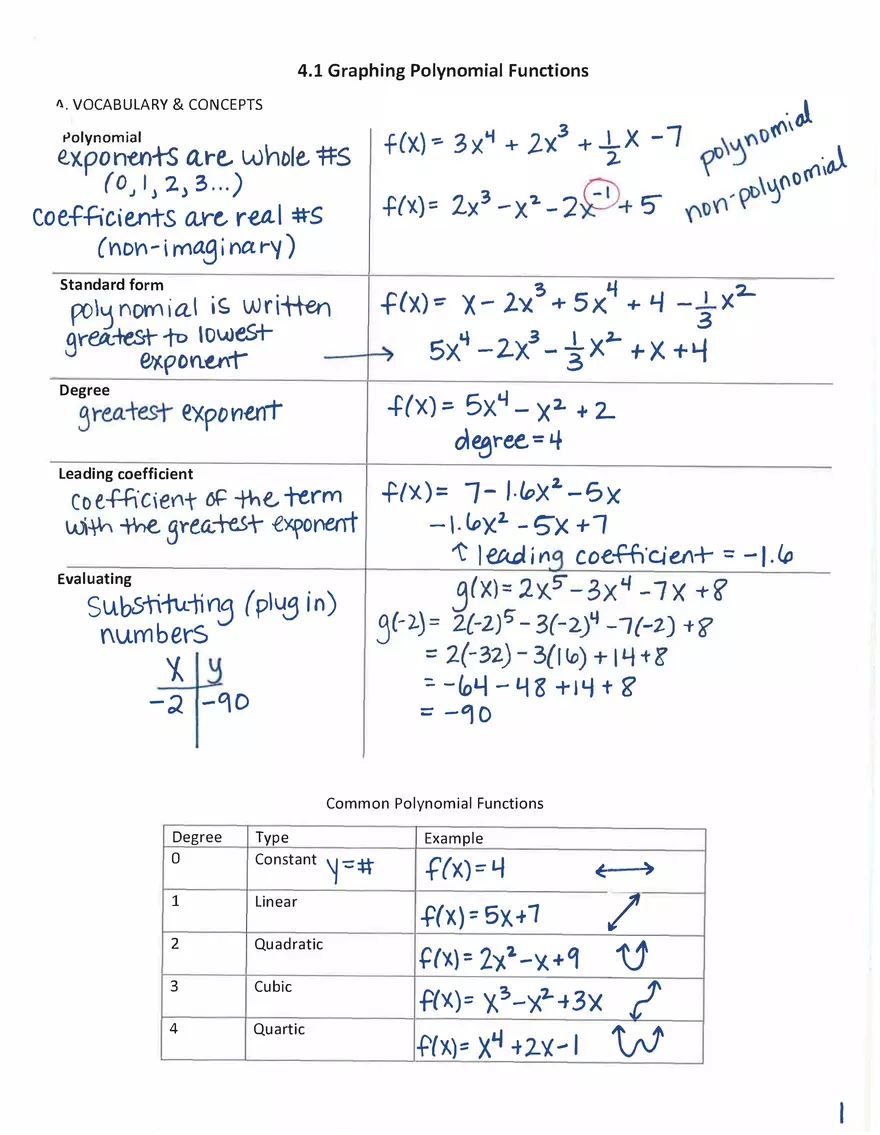 4.1 Graphing Polynomial Functions
A. VOCABULARY & CONCEPTS
Polynomial
exponents are whole #s
(0, 1, 2, 3...)
coefficients are real #s
(non-imaginary)
f(x) = 3x⁴ + 2x³ + 1/2 x - 7 polynomial
f(x) = 2x³ - x² - 2x⁻¹ + 5 non-polynomial
Standard form
polynomial is written
greatest to lowest
exponent →
f(x) = x - 2x³ + 5x⁴ + 4 - 1/3 x²
5x⁴ - 2x³ - 1/3 x² + x + 4
Degree
greatest exponent
f(x) = 5x⁴ - x² + 2
degree = 4
Leading coefficient
coefficient of the term
with the greatest exponent
f(x) = 7 - 1.6x² - 5x
-1.6x² - 5x + 7
↑ leading coefficient = -1.6
Evaluating
substituting (plug in)
numbers
x y
-2 -90
g(x) = 2x⁵ - 3x⁴ - 7x + 8
g(-2) = 2(-2)⁵ - 3(-2)⁴ - 7(-2) + 8
= 2(-32) - 3(16) + 14 + 8
= -64 - 48 + 14 + 8
= -90
Common Polynomial Functions
Degree Type Example
0 Constant y=# f(x) = 4
1 Linear f(x) = 5x+7
2 Quadratic f(x) = 2x² - x + 9
3 Cubic f(x) = x³ - x² + 3x
4 Quartic f(x) = x⁴ + 2x - 1
1